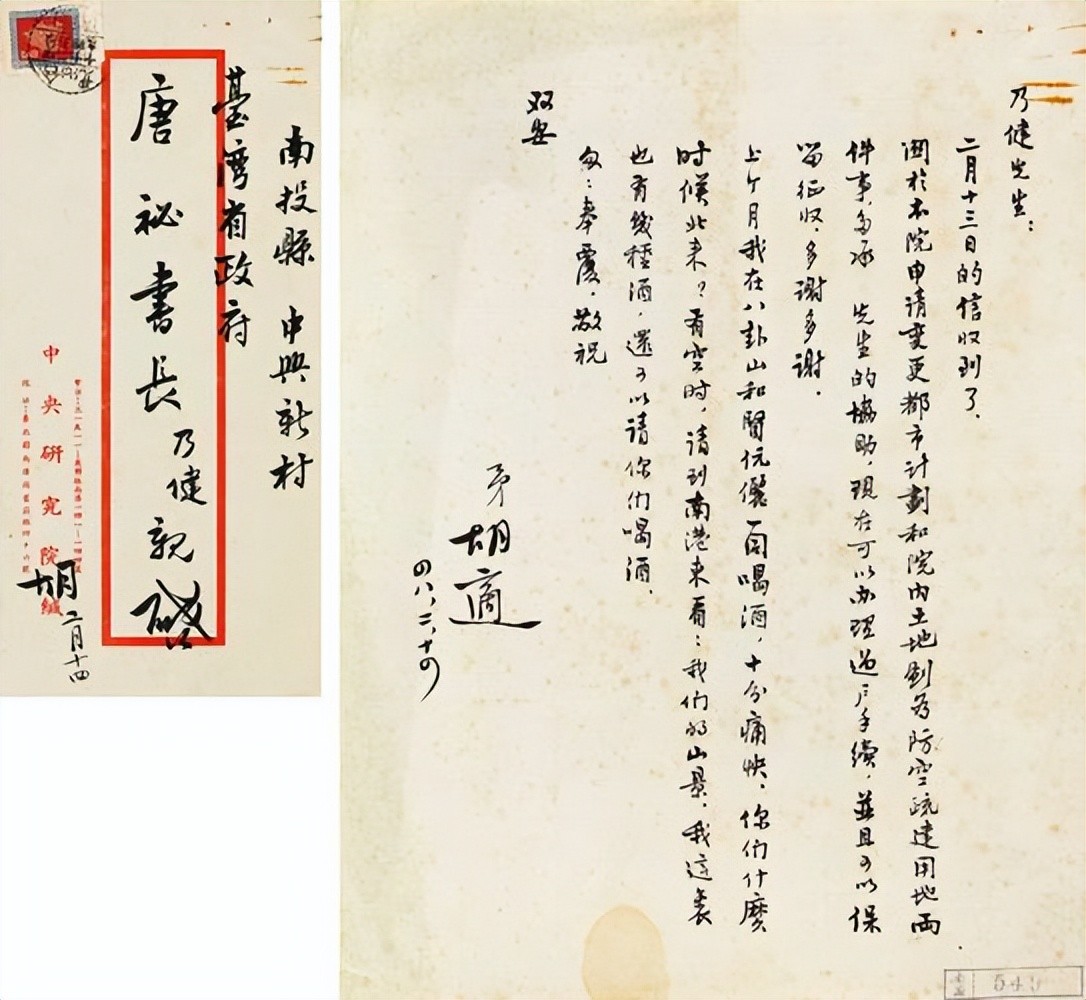 南投縣 中興新村
臺灣省政府
唐祕書長乃健親啟
中央研究院緘
胡 二月十四
乃健先生：
二月十三日的信收到了．
関於本院申請變更都市計劃和院內土地劃為防空疏建用地兩
件事，多承 先生的協助，現在可以办理過户手續，並且可以保
留征收，多謝多謝．
上个月我在八卦山和賢伉儷同喝酒，十分痛快，你们什麼
時候北来？有空時，請到南港来看：我们的山景，我這裏
也有幾種酒，還可以請你们喝酒．
匆：奉覆，敬祝
双安
弟 胡適
四八，二，十四